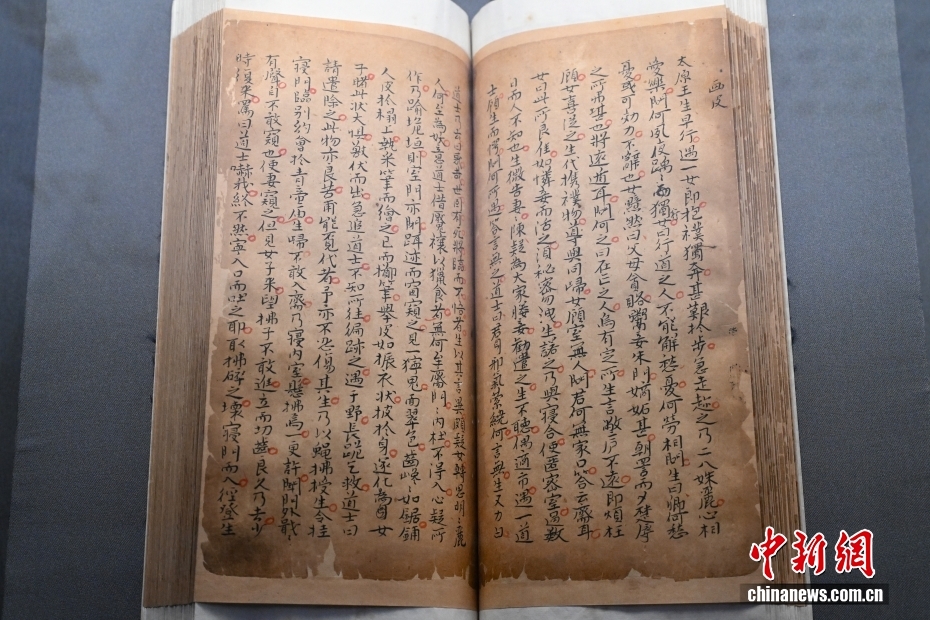 画皮
太原王生早行遇一女郎抱襆獨奔甚艱於步急走趂之乃二八姝麗心相
愛樂問何夙夜踽〻獨行女曰行道之人不能解愁憂何勞相問生曰卿何愁
憂或可効力不辭也女黯然曰父母貪賂鬻妾朱門嫡妬甚朝詈而夕楚辱
之所弗堪也將遠遁耳問何之曰在亡之人烏有定所生言敝廬不遠即煩枉
顧女喜從之生代携襆物導與同歸女顧室無人問君何無家口答云齋耳
女曰此所良佳如憐妾而活之須秘密勿洩生諾之乃與寢合使匿密室過數
日而人不知也生微告妻〻陳疑為大家媵妾勸遣之生不聽偶適市遇一道
士顧生而愕問何所遇答言無之道士曰君身邪氣縈繞何言無生又力白
道士乃去曰惑哉世固有死將臨而不悟者生以其言異頗疑女轉思明〻麗
人何至為妖意道士借魘禳以獵食者無何至齋門〻内杜不得入心疑所
作乃踰垝垣則室門亦閉躡迹而窗窺之見一獰鬼面翠色齒巉〻如鋸鋪
人皮於榻上執采筆而繪之已而擲筆舉皮如振衣狀披於身遂化為女
子睹此狀大懼獸伏而出急追道士不知所往徧跡之遇于野長跪乞救道士曰
請遣除之此物亦良苦甫能覓代者予亦不忍傷其生乃以蠅拂授生令挂
寢門臨别約會於青帝廟生歸不敢入齋乃寢内室懸拂焉一更許聞門外戢〻
有聲自不敢窺也使妻窺之但見女子來望拂子不敢進立而切齒良久乃去少
時復來罵曰道士嚇我終不然寧入口而吐之耶取拂碎之壞寢門而入徑登生
中新网
chinanews.com.cn